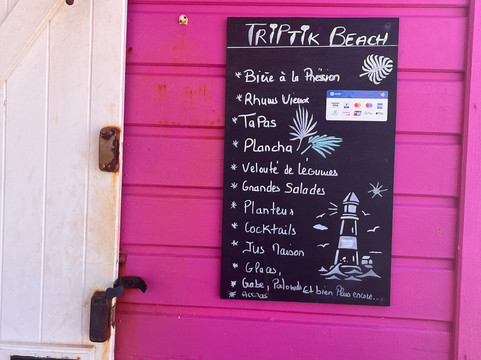 TRiPTiK BEACH
* Bière à la Pression
* Rhums Vieux
* TaPas
* Plancha
* Velouté de légumes
* Grandes Salades
* Planteurs
* Cocktails
* Jus Maison
* Glaces,
* Accras Et bien Plus encore...